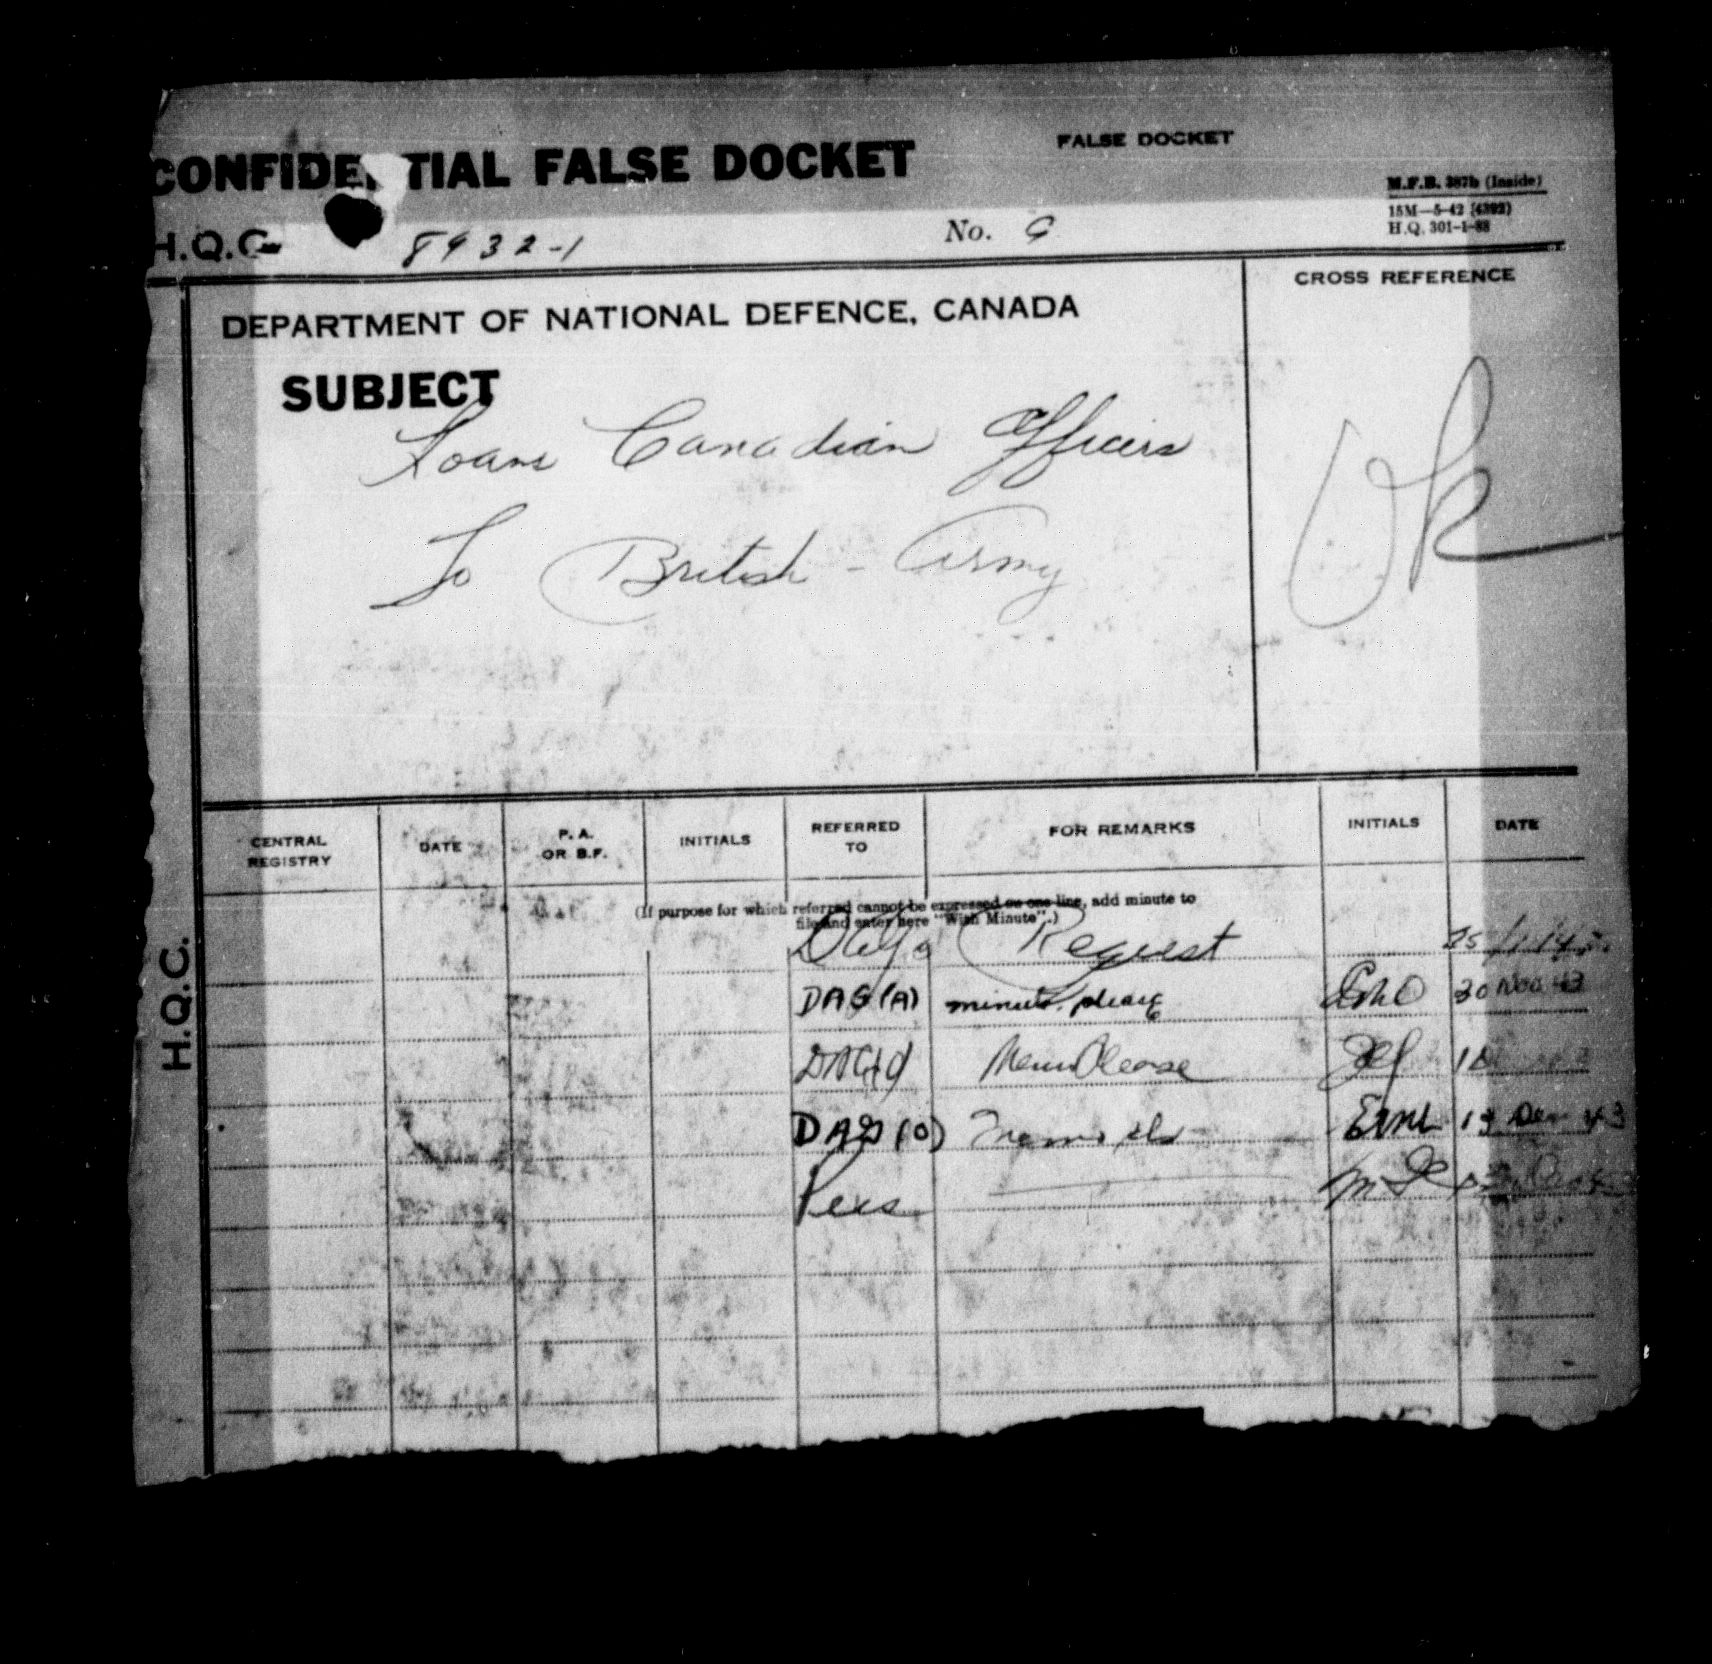 CONFIDENTIAL FALSE DOCKET
FALSE DOCKET
M.F.B. 387b (Inside)
15M—5-42 (4392)
H.Q. 301-1-88
H.Q.C. 8932-1 No. G
DEPARTMENT OF NATIONAL DEFENCE, CANADA
CROSS REFERENCE
SUBJECT
Loans Canadian Officers
To British - Army
Ok
CENTRAL REGISTRY DATE P. A. OR B.F. INITIALS REFERRED TO FOR REMARKS INITIALS DATE
(If purpose for which referred cannot be expressed on one line, add minute to
file and enter here "With Minute".)
Request 25
DAG (A) minute please 30 Nov 43
Please
DAG (O)
H.Q.C.